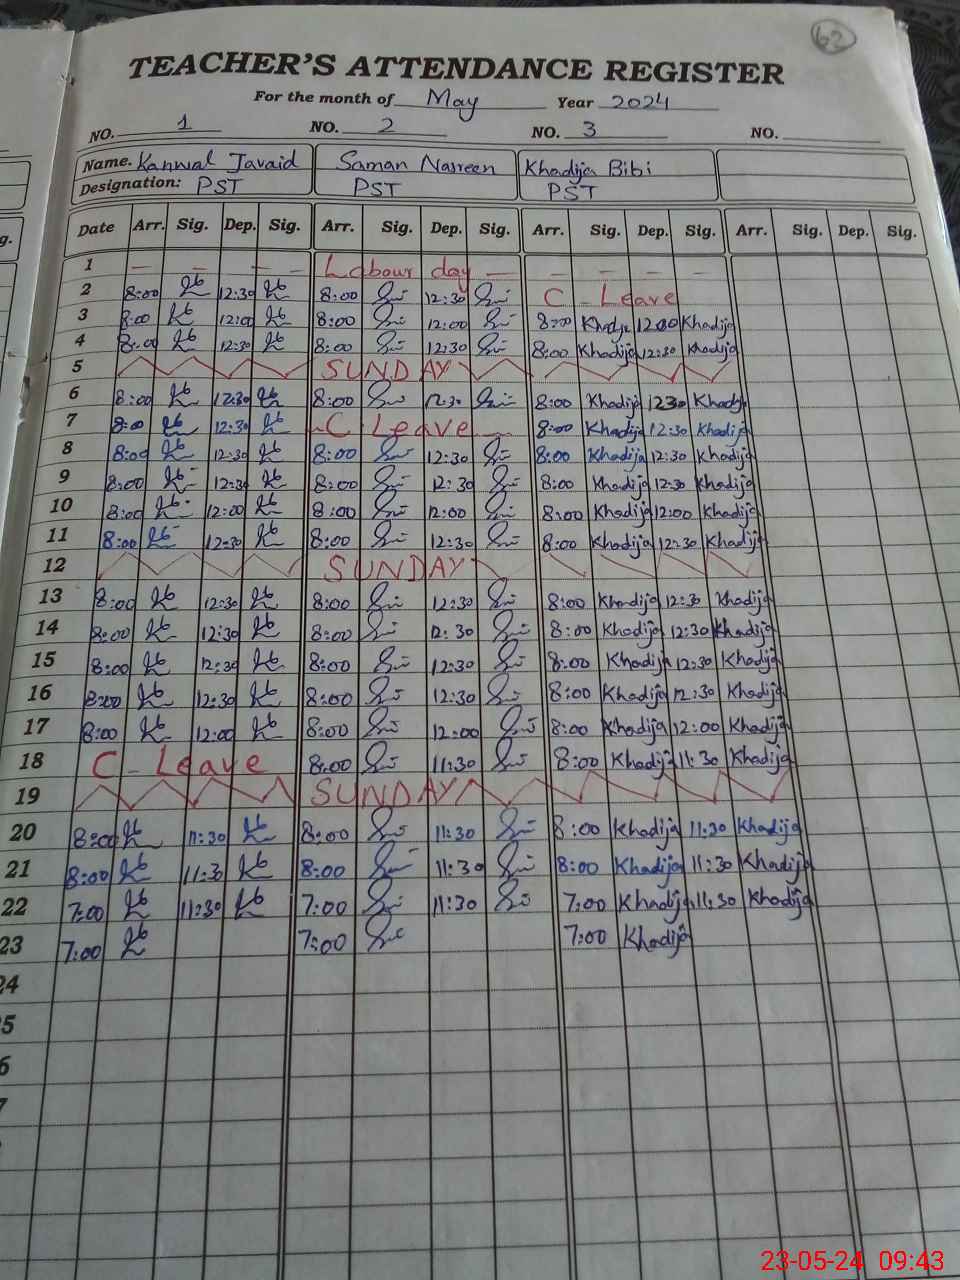 62
TEACHER'S ATTENDANCE REGISTER
For the month of May Year 2024
NO. 1 NO. 2 NO. 3 NO.
Name. Kanwal Javaid Saman Nasreen Khadija Bibi
Designation: PST PST PST
g. Date Arr. Sig. Dep. Sig. Arr. Sig. Dep. Sig. Arr. Sig. Dep. Sig. Arr. Sig. Dep. Sig.
1 - - - - Labour day - - - - -
2 8:00 12:30 8:00 12:30 C - Leave
3 8:00 12:00 8:00 12:00 8:00 Khadija 12:00 Khadija
4 8:00 12:30 8:00 12:30 8:00 Khadija 12:30 Khadija
5 SUNDAY
6 8:00 12:30 8:00 12:30 8:00 Khadija 1230 Khadija
7 8:00 12:30 - C Leave - 8:00 Khadija 12:30 Khadija
8 8:00 12:30 8:00 12:30 8:00 Khadija 12:30 Khadija
9 8:00 12:30 8:00 12:30 8:00 Khadija 12:30 Khadija
10 8:00 12:00 8:00 12:00 8:00 Khadija 12:00 Khadija
11 8:00 12:30 8:00 12:30 8:00 Khadija 12:30 Khadija
12 SUNDAY
13 8:00 12:30 8:00 12:30 8:00 Khadija 12:30 Khadija
14 8:00 12:30 8:00 12:30 8:00 Khadija 12:30 Khadija
15 8:00 12:30 8:00 12:30 8:00 Khadija 12:30 Khadija
16 8:00 12:30 8:00 12:30 8:00 Khadija 12:30 Khadija
17 8:00 12:00 8:00 12:00 8:00 Khadija 12:00 Khadija
18 C - Leave 8:00 11:30 8:00 Khadija 11:30 Khadija
19 SUNDAY
20 8:00 11:30 8:00 11:30 8:00 Khadija 11:30 Khadija
21 8:00 11:30 8:00 11:30 8:00 Khadija 11:30 Khadija
22 7:00 11:30 7:00 11:30 7:00 Khadija 11:30 Khadija
23 7:00 7:00 7:00 Khadija
24
5
6
7
23-05-24 09:43